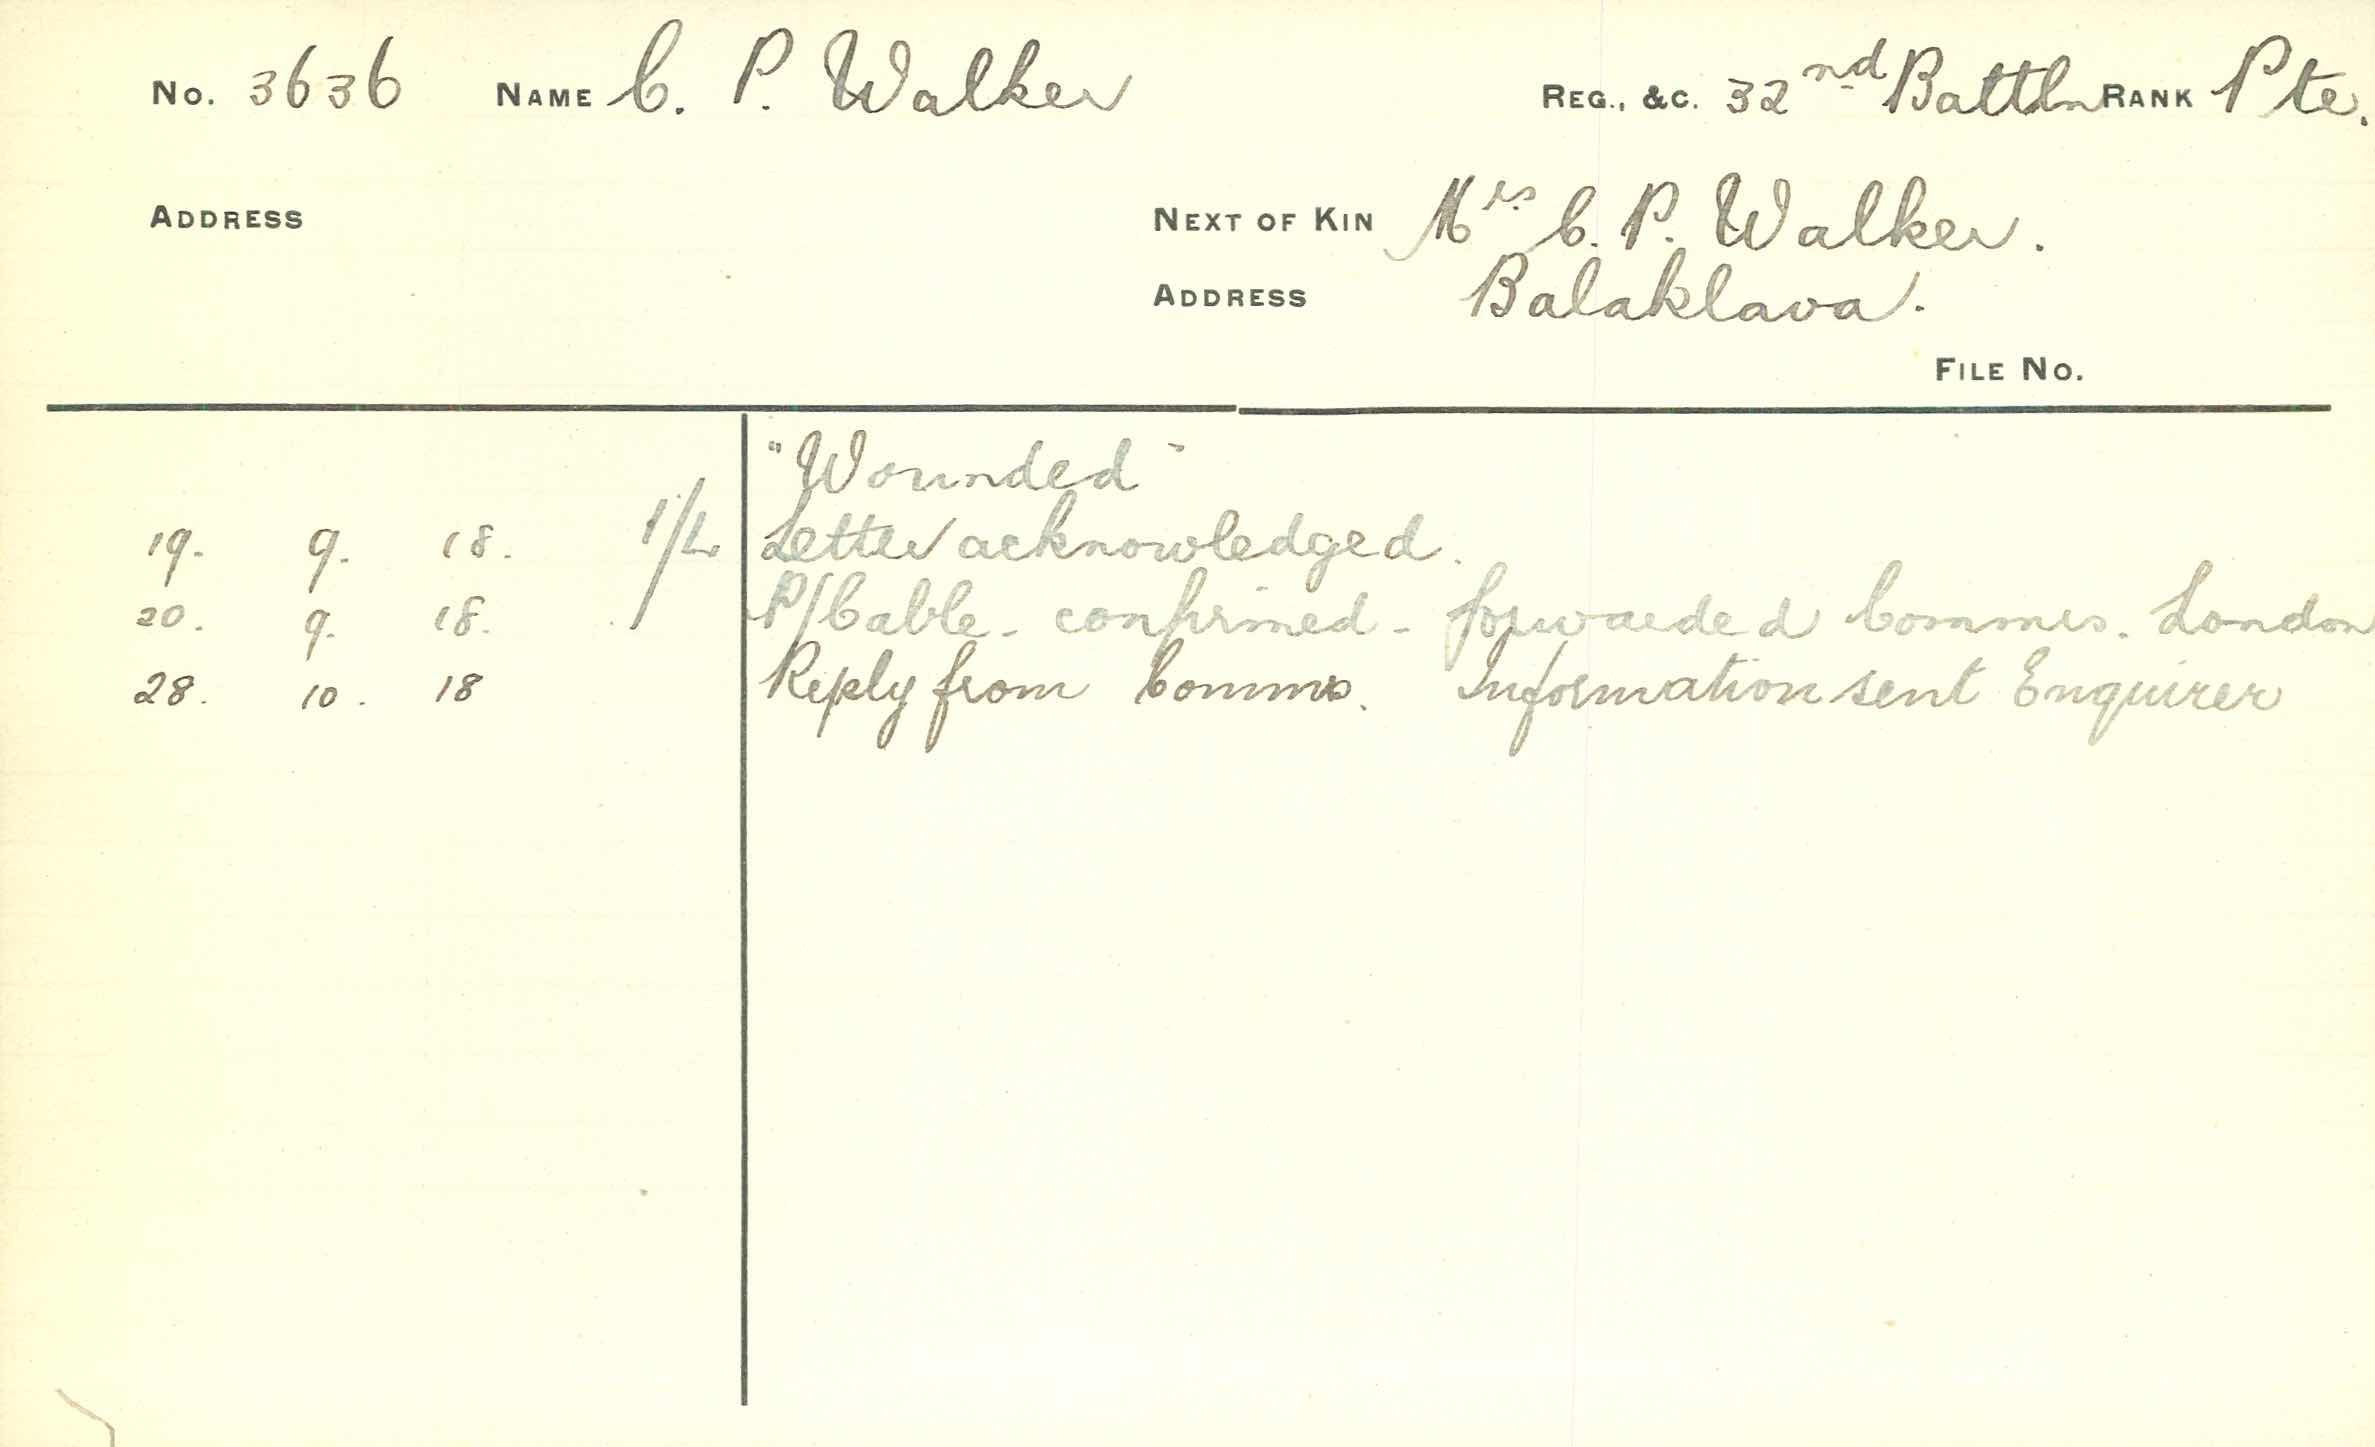 No. 3636 NAME C. P. Walker REG., &C. 32nd Battln RANK Pte.
ADDRESS NEXT OF KIN Mrs C. P. Walker.
ADDRESS Balaklava.
FILE No.
"Wounded"
19. 9. 18. 1/L Letter acknowledged.
20. 9. 18. P/Cable - confirmed - forwarded Commrs. London
28. 10. 18 Reply from Commrs. Information sent Enquirer